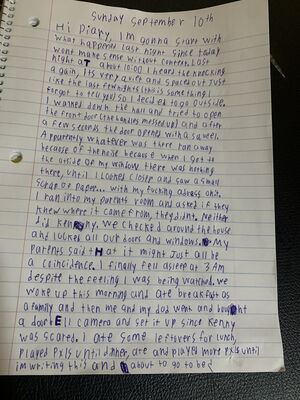 Sunday September 10th
Hi Diary, I'm gonna start with
what happened last night since today
wont make sense without context. Last
night aT about 10:00 I heard the knocking
again, Its very quite and spaced out Just
like the last few nights (this is something I
forgot to tell you) so I decided to go outside.
I walked down the hall and tried to open
the front door (the handles messed up) and after
a few seconds the door opened with a squeek.
Apparently whatever was there ran away
because of the noise because when I got to
the outside of my window there was nothing
there, until I looked closer and saw a small
scrap of paper... with my fucking adress on it.
I ran into my parents room and asked if they
knew where it came from, they didnt. Neither
did Kenny. we checked around the house
and locked all our doors and windows. My
Parents said tHat it might just all be
a coincidence. I finally fell asleep at 3 Am
despite the feeling I was being watched. we
woke up this morning and ate breakfast as
a family and then me and my dad went and bought
a doorbEll camera and set it up since Kenny
was scared. I ate some leftovers for lunch,
played Pxls until dinner, ate and played more pxls until
im writing this and about to go to bed